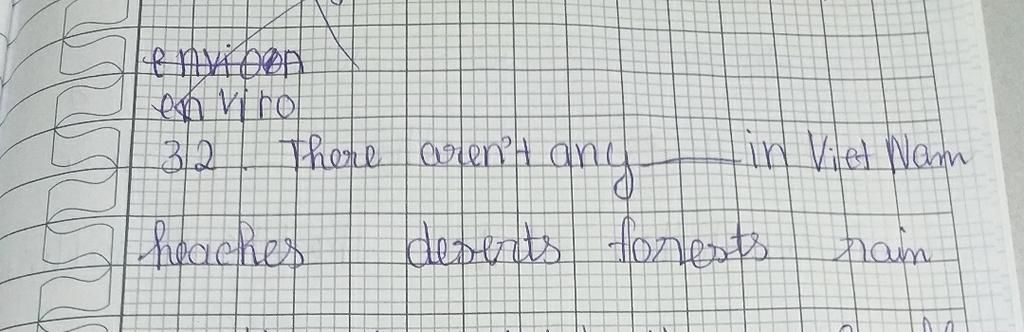 environ
enviro
32. There aren't any ____ in Viet Nam
beaches deserts forests rain